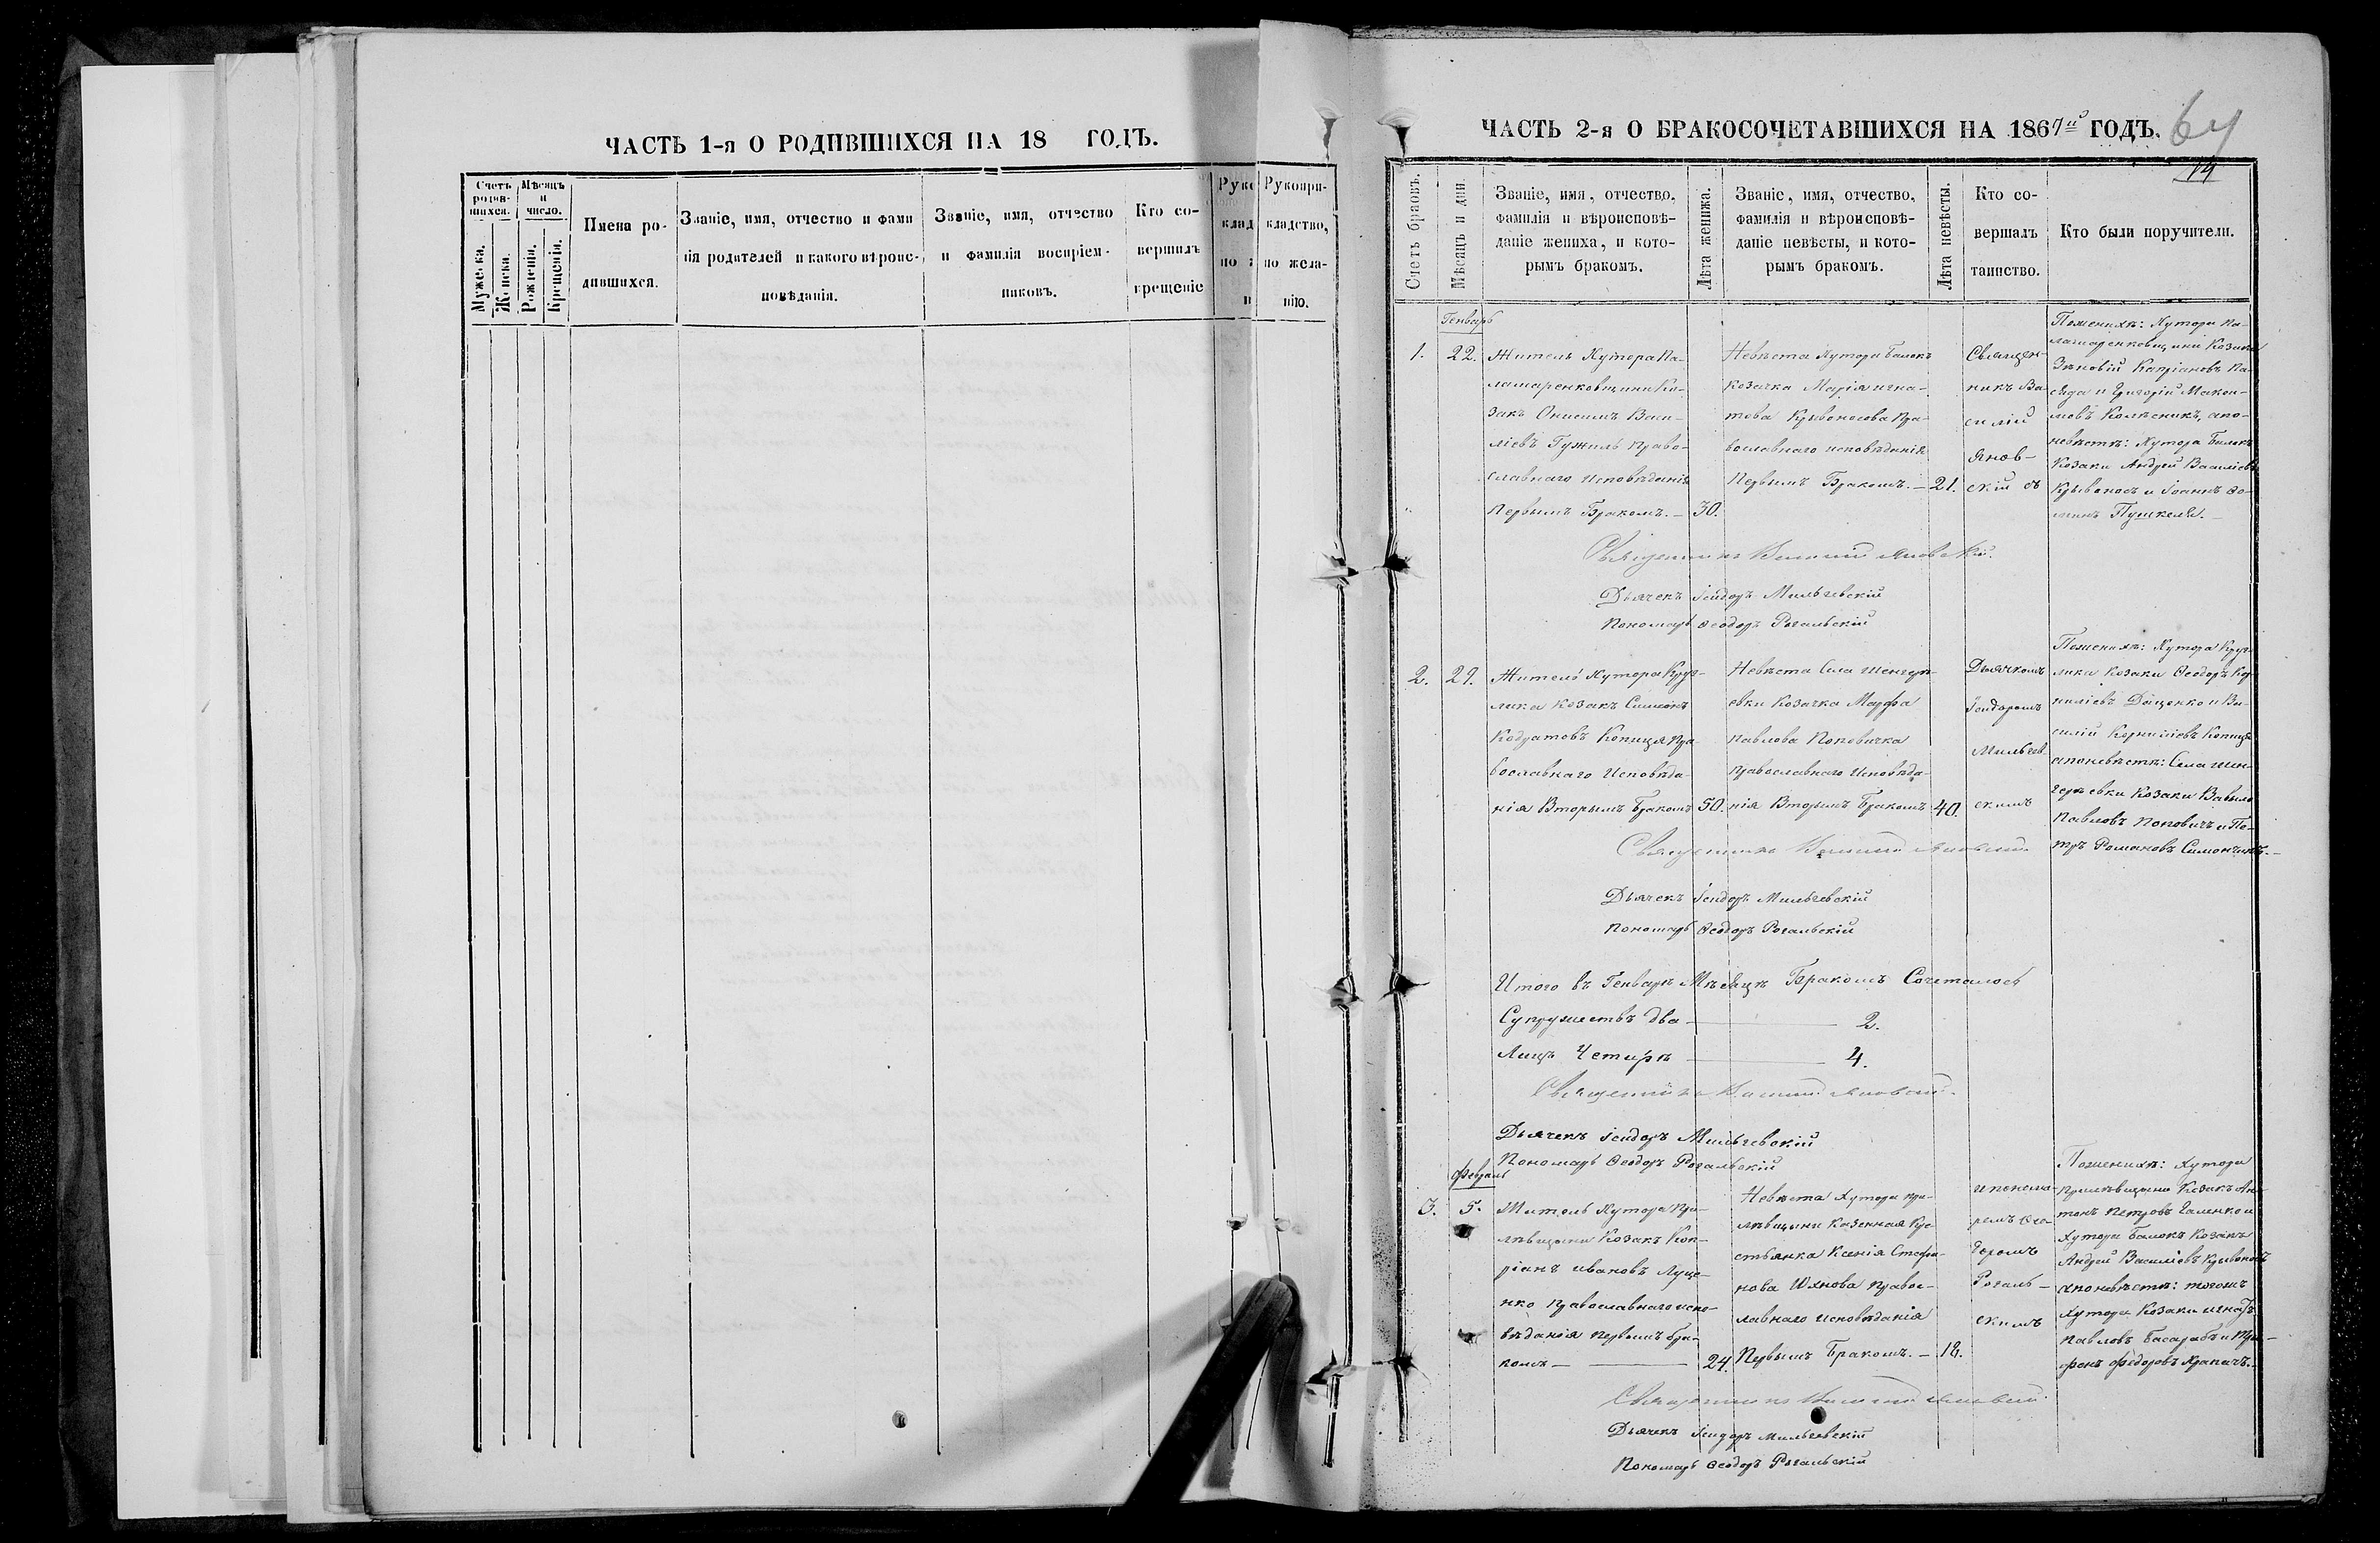 ЧАСТЬ 1-я О РОДИВШИХСЯ НА 18 ГОДЪ.
Счетъ родив-
шихся.
Мужеска.
Женска.
Мѣсяцъ
и
число.
Рожденія.
Крещенія.
Имена ро-
дившихся.
Званіе, имя, отчество и фами
лія родителей и какого вѣроис-
повѣданія.
Званіе, имя, отчество
и фамилія воспріем-
никовъ.
Кто со-
вершилъ
крещеніе
Руко
клад
по ж
н
Рукопри-
кладство,
по жела-
нію.
ЧАСТЬ 2-я О БРАКОСОЧЕТАВШИХСЯ НА 1867й ГОДЪ.
64
14
Счетъ браковъ.
Мѣсяцъ и дни.
Званіе, имя, отчество,
фамилія и вѣроисповѣ-
даніе жениха, и кото-
рымъ бракомъ.
Лѣта жениха.
Званіе, имя, отчество,
фамилія и вѣроисповѣ-
даніе невѣсты, и кото-
рымъ бракомъ.
Лѣта невѣсты.
Кто со-
вершалъ
таинство.
Кто были поручители.
Генварь
1.
22.
Житель Хутора Па-
ламаренковщини Ко-
закъ Онисимъ Васи-
ліевъ Гужиль Право-
славнаго Исповѣданія
Первымъ Бракомъ. —
30.
Невѣста Хутора Балокъ
козачка Марія Игна-
това Крывоносова Пра-
вославнаго исповѣданія
Первымъ Бракомъ. —
21.
Священ-
никъ Ва-
силій
Янов-
скій съ
Пожениху: Хутора Па-
ламаренковщини Козаки
Зѣновій Капріановъ
и Григорій Макси-
мовъ Колѣсникъ, а по-
невѣстѣ: Хутора Балокъ
Козаки Андрей Василіевъ
Крывоносъ и Іоаннъ Ѳо-
минъ Пушкель. —
Священникъ Василій Яновскій.
Дьячекъ Ісидоръ Мильчевскій
Пономарь Ѳеодоръ Рогальскій
2.
29.
Житель Хутора Круг-
лика Козакъ Симеонъ
Кодратовъ Копиця Пра-
вославнаго Исповѣда-
нія Вторымъ Бракомъ
50.
Невѣста Села Шенгур-
евки Козачка Марфа
Павлова Поповичка
Православнаго Исповѣда-
нія Вторымъ Бракомъ
40.
Дьячкомъ
Ісидоромъ
Мильчев-
скимъ
Пожениху: Хутора Круг-
лика Козаки Ѳеодоръ Кор-
ниліевъ Доценко и Ва-
силій Корниліевъ Копиця
а поневѣстѣ: Села Шен-
гурѣевки Козаки Вавыло
Павловъ Поповичъ и Пе-
тръ Романовъ Симончикъ. —
Священникъ Василій Яновскій
Дьячекъ Ісидоръ Мильчевскій
Пономарь Ѳеодоръ Рогальскій
Итого въ Генварѣ Мѣсяцѣ Бракомъ Сочеталось
Супружествъ два — 2.
Лицъ Четирѣ — 4.
Священникъ Василій Яновскій.
Дьячекъ Ісидоръ Мильчевскій
Пономарь Ѳеодоръ Рогальскій
Февраль
3.
5.
Житель Хутора Кри-
лѣвщини Козакъ Кип-
ріанъ Ивановъ Луце-
нко Православнаго испо-
вѣданія Первымъ бра-
комъ —
24.
Невѣста Хутора Кри-
лѣвщини Казенная Кре-
стьянка Ксенія Стефа-
нова Право-
славнаго исповѣданія
Первымъ Бракомъ. —
18.
и понома-
ремъ Ѳео-
доромъ
Рогаль-
скимъ
Пожениху: Хутора
Крилѣвщини Козакъ Ан-
тонъ Петровъ Галенко и
Хутора Балокъ Козакъ
Андрей Василіевъ Крывоносъ
а поневѣстѣ: тогожъ
Хутора Козаки Игнатъ
Павловъ Басарабъ и Три-
фонъ Федоровъ —
Священникъ Василій Яновскій
Дьячекъ Ісидоръ Мильчевскій
Пономарь Ѳеодоръ Рогальскій